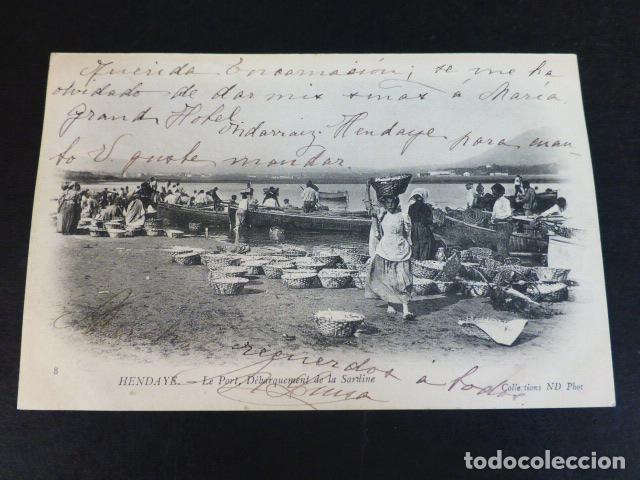 Querida Encarnación; se me ha
olvidado de dar mis señas á María
Grand Hotel Hendaye para cuan-
to V. guste mandar.
recuerdos á todos
Luisa
8
HENDAYE. — Le Port, Débarquement de la Sardine
Collections ND Phot
todocoleccion.net